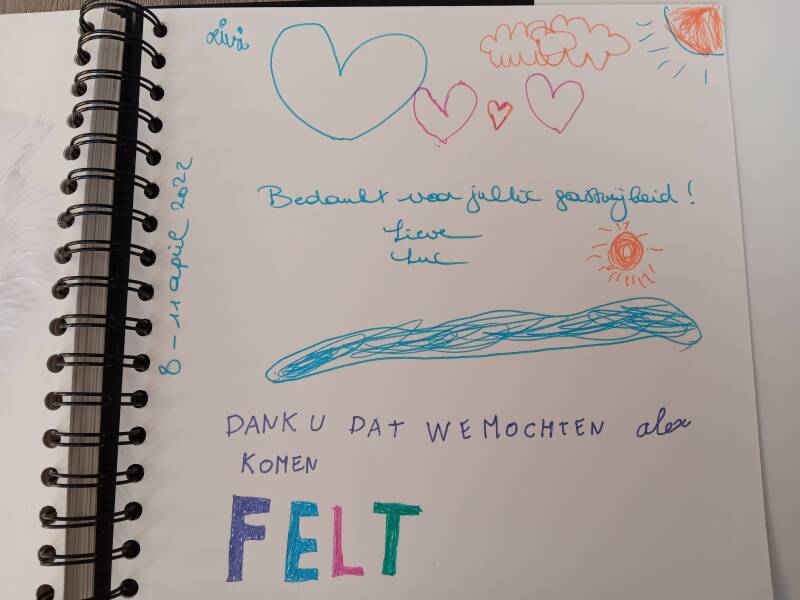 8 - 11 april 2022
Bedankt voor jullie gastvrijheid!
Lieve
Luc
DANK U DAT WE MOCHTEN
KOMEN
FELT